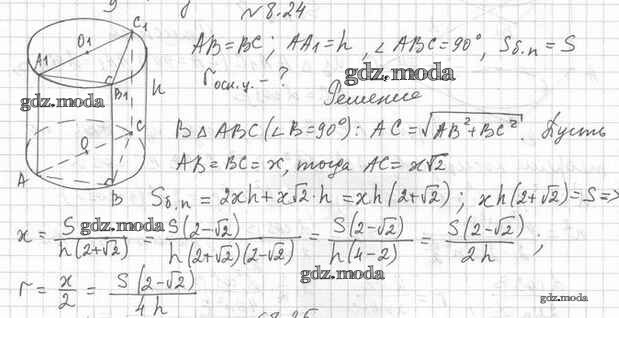 №8.24
C₁
O₁
A₁
B₁
h
C
O
A
B
AB=BC; AA₁=h, ∠ABC=90°, Sб.п=S
rосн.ц. - ?
gdz.moda
gdz.moda
Решение
В △ABC(∠B=90°): AC=√(AB²+BC²). Пусть
AB=BC=x, тогда AC=x√2
Sб.п = 2xh+x√2·h = xh(2+√2); xh(2+√2)=S=>
x = S/(h(2+√2)) = S(2-√2)/(h(2+√2)(2-√2)) = S(2-√2)/(h(4-2)) = S(2-√2)/(2h);
gdz.moda
gdz.moda
r = x/2 = S(2-√2)/(4h)
gdz.moda